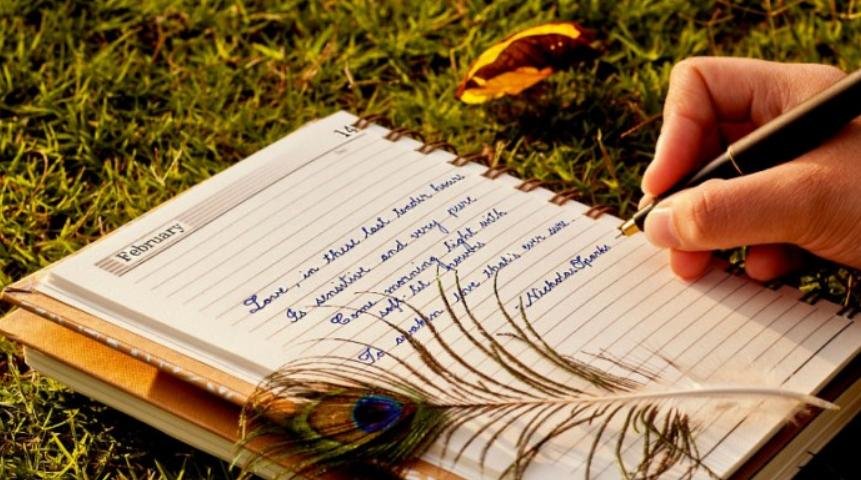 14
February
Love, in these last tender hours
Is sensitive and very pure
Come morning light with
soft-lit powers
To awaken love that's ever sure.
-Nicholas Sparks